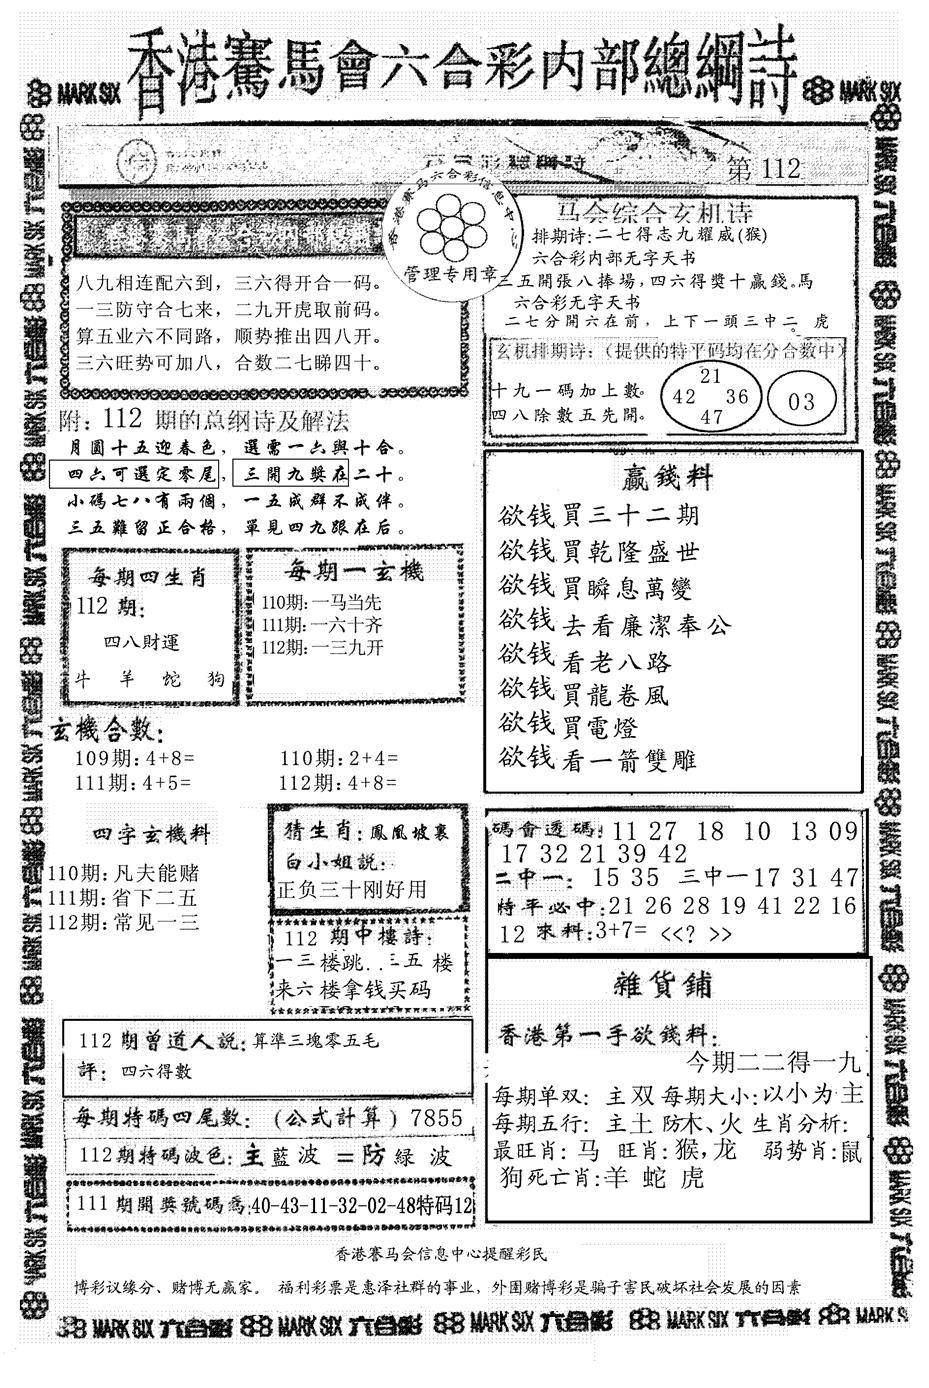 香港賽馬會六合彩内部總綱詩
MARK SIX
MARK SIX
第 112
香港赛马六合彩信息中
管理专用章
八九相连配六到，三六得开合一码。
一三防守合七来，二九开虎取前码。
算五业六不同路，顺势推出四八开。
三六旺势可加八，合数二七睇四十。
马会综合玄机诗
排期诗:二七得志九耀威(猴)
六合彩内部无字天书
三五開張八捧場，四六得獎十贏錢。馬
六合彩无字天书
二七分開六在前，上下一頭三中二。虎
玄机排期诗:（提供的特平码均在分合数中）
十九一碼加上數。
四八除數五先開。
21
42 36
47
03
附: 112 期的总纲诗及解法
月圓十五迎春色，選需一六與十合。
四六可選定零尾，三開九獎在二十。
小碼七八有兩個，一五成群不成伴。
三五難留正合格，單見四九跟在后。
每期四生肖
112 期:
四八財運
牛 羊 蛇 狗
每期一玄機
110期:一马当先
111期:一六十齐
112期:一三九开
玄機合數:
109期:4+8= 110期:2+4=
111期:4+5= 112期:4+8=
四字玄機料
110期:凡夫能赌
111期:省下二五
112期:常见一三
猜生肖:鳳凰坡裏
白小姐説:
正负三十刚好用
112 期中樓詩:
一三楼跳..三五 楼
来六楼拿钱买码
赢錢料
欲钱買三十二期
欲钱買乾隆盛世
欲钱買瞬息萬變
欲钱去看廉潔奉公
欲钱看老八路
欲钱買龍卷風
欲钱買電燈
欲钱看一箭雙雕
碼會透碼: 11 27 18 10 13 09
17 32 21 39 42
二中一: 15 35 三中一17 31 47
特平必中:21 26 28 19 41 22 16
12 來料:3+7= <<? >>
雜貨鋪
香港第一手欲錢料:
今期二二得一九
每期单双: 主双 每期大小:以小为主
每期五行: 主土 防木、火 生肖分析:
最旺肖: 马 旺肖:猴,龙 弱势肖:鼠
狗死亡肖:羊 蛇 虎
112 期曾道人説:算準三塊零五毛
評: 四六得數
每期特碼四尾數:（公式計算）7855
112期特碼波色:主藍波 =防綠 波
111期開獎號碼爲:40-43-11-32-02-48特码12
香港賽马会信息中心提醒彩民
博彩议缘分、赌博无赢家。 福利彩票是惠泽社群的事业，外围赌博彩是骗子害民破坏社会发展的因素
MARK SIX 六合彩 MARK SIX 六合彩 MARK SIX 六合彩 MARK SIX 六合彩 MARK SIX